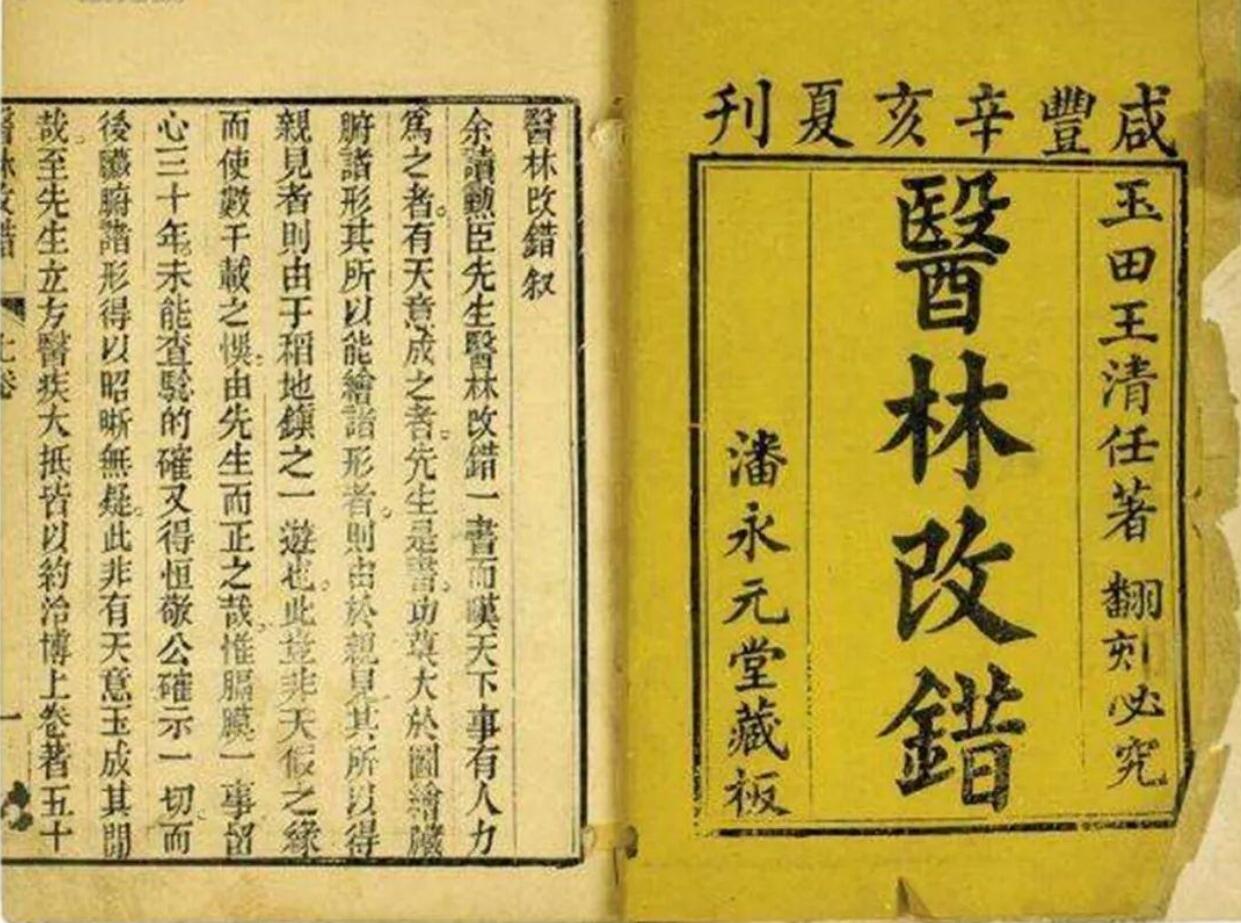 咸豐辛亥夏刊
玉田王清任著 翻刻必究
醫林改錯
潘永元堂藏板
醫林改錯叙
余讀勲臣先生醫林改錯一書而嘆天下事有人力
爲之者。有天意成之者。先生是書。功莫大於圖繪臟
腑諸形其所以能繪諸形者。則由於親見其所以得
親見者則由于稻地鎮之一遊也。此豈非天假之緣
而使數千載之悞。由先生而正之哉。惟膈膜一事留
心三十年。未能查驗的確又得恒敬公確示一切。而
後臟腑諸形得以昭晰無疑。此非有天意玉成其間
哉。至先生立方醫疾大抵皆以約治博上卷著五十
醫林改錯
上卷
一